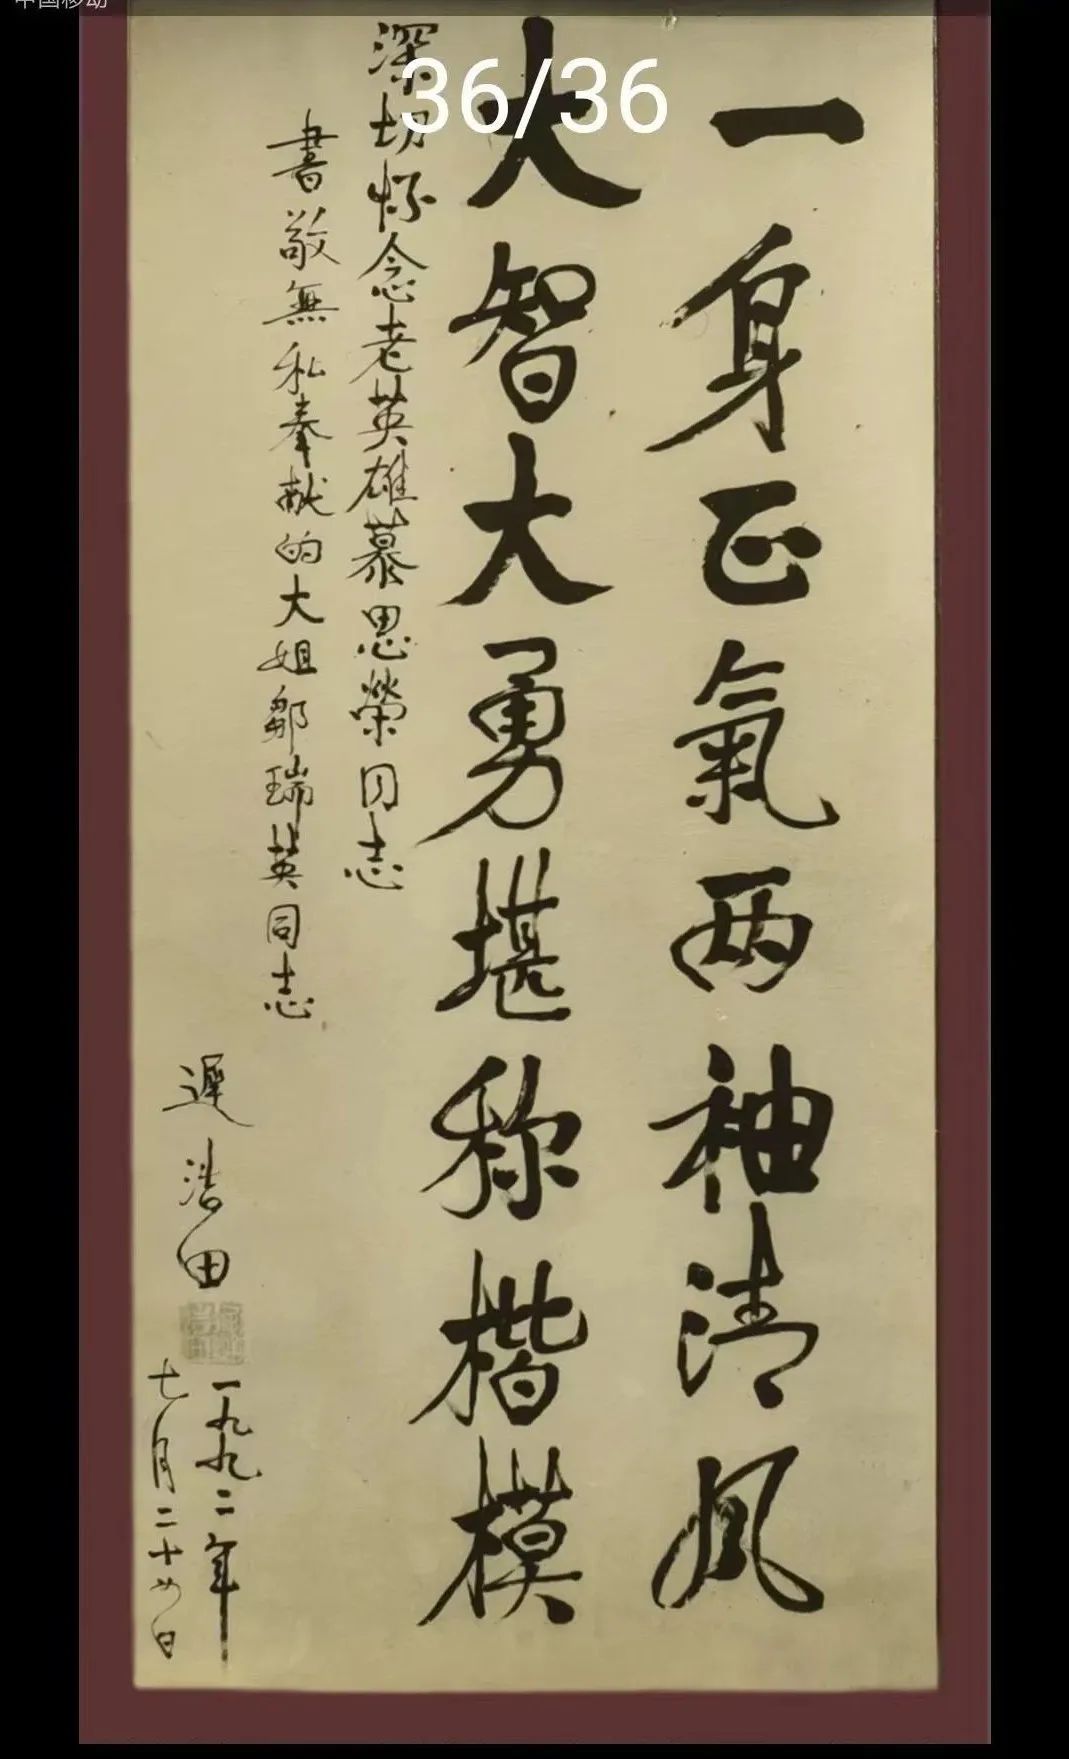 中国移动
36/36
一身正氣两袖清风
大智大勇堪称楷模
深切怀念老英雄慕思榮同志
書敬無私奉献的大姐鄒瑞英同志
遲浩田
一九九二年
七月二十日